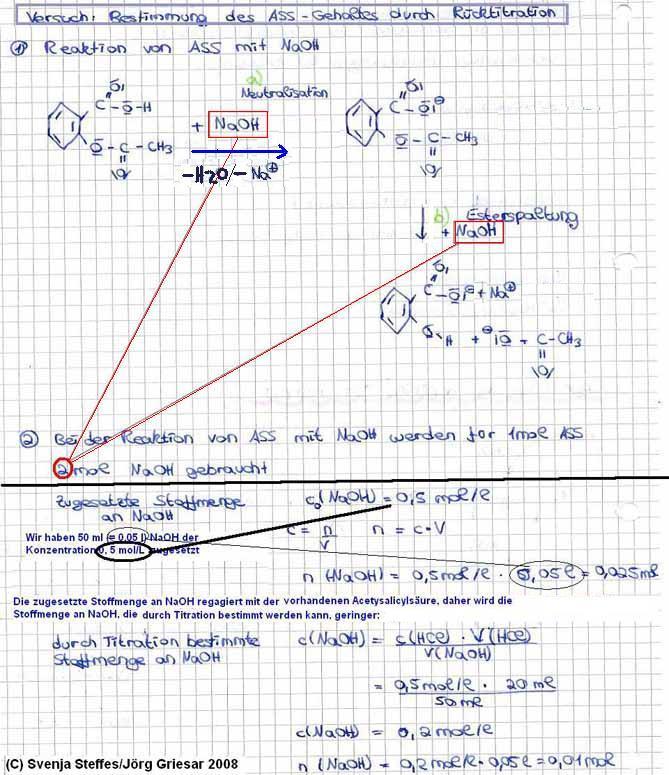 Versuch: Bestimmung des ASS-Gehaltes durch Rücktitration
① Reaktion von ASS mit NaOH
a)
Neutralisation
C - O - H
+ NaOH
O - C - CH3
O
-H2O - Na⊕
C - O⊖
O - C - CH3
O
b) Esterspaltung
+ NaOH
C - O⊖ + Na⊕
O H + ⊖O - C - CH3
O
② Bei der Reaktion von ASS mit NaOH werden for 1mol ASS
2 mol NaOH gebraucht
zugesetzte Stoffmenge
an NaOH
c₀(NaOH) = 0,5 mol/l
c = n/V n = c·V
Wir haben 50 ml (= 0.05 l) NaOH der
Konzentration 0, 5 mol/L zugesetzt
n (NaOH) = 0,5mol/l · 0,05l = 0,025mol
Die zugesetzte Stoffmenge an NaOH regagiert mit der vorhandenen Acetysalicylsäure, daher wird die
Stoffmenge an NaOH, die durch Titration bestimmt werden kann, geringer:
durch Titration bestimmte
Stoffmenge an NaOH
c(NaOH) = c(HCl) · V(HCl)
V(NaOH)
= 0,5mol/l · 20ml
50ml
c(NaOH) = 0,2mol/l
n (NaOH) = 0,2mol/l · 0,05l = 0,01mol
(C) Svenja Steffes/Jörg Griesar 2008